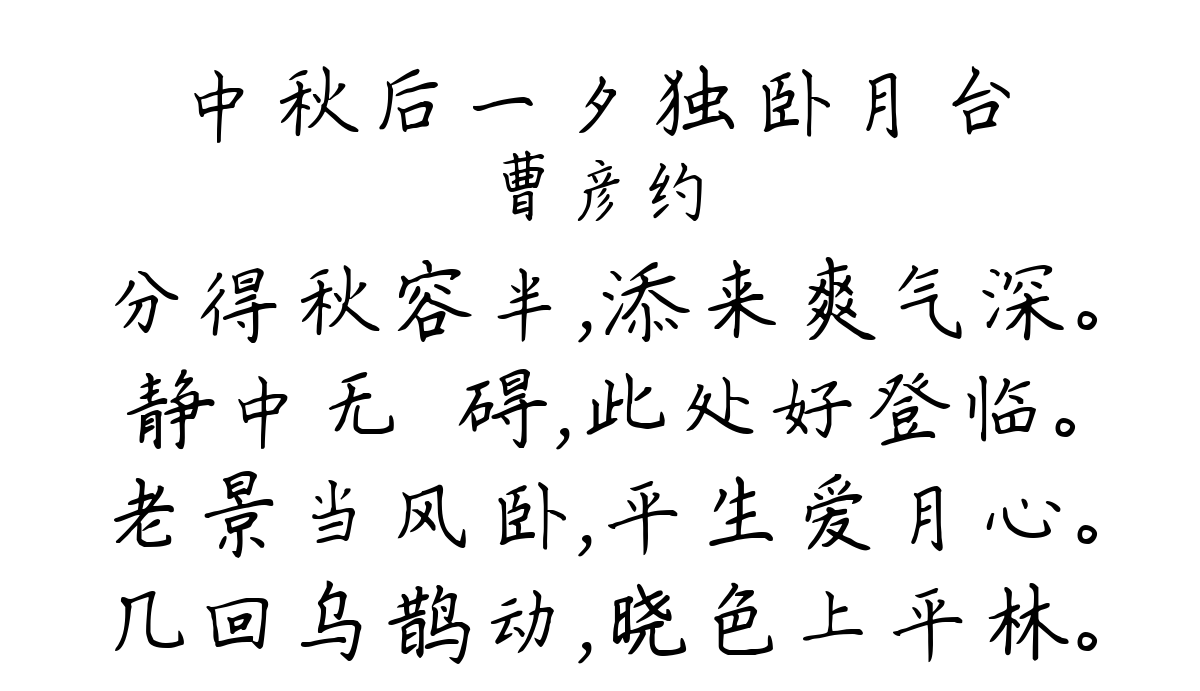 中秋后一夕独卧月台
曹彦约
分得秋容半,添来爽气深。
静中无 碍,此处好登临。
老景当风卧,平生爱月心。
几回乌鹊动,晓色上平林。